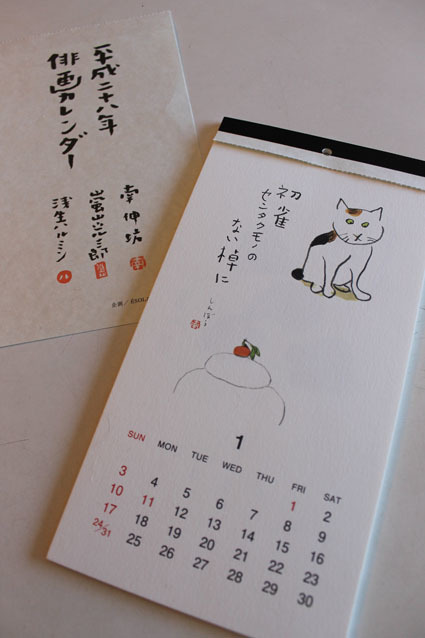 平成二十八年
俳画カレンダー
南伸坊
嵐山光三郎
浅生ハルミン
南
ハ
企画/
初雀
センタクモノの
ない棹に
しんぼう
1
SUN MON TUE WED THU FRI SAT
1 2
3 4 5 6 7 8 9
10 11 12 13 14 15 16
17 18 19 20 21 22 23
24/31 25 26 27 28 29 30